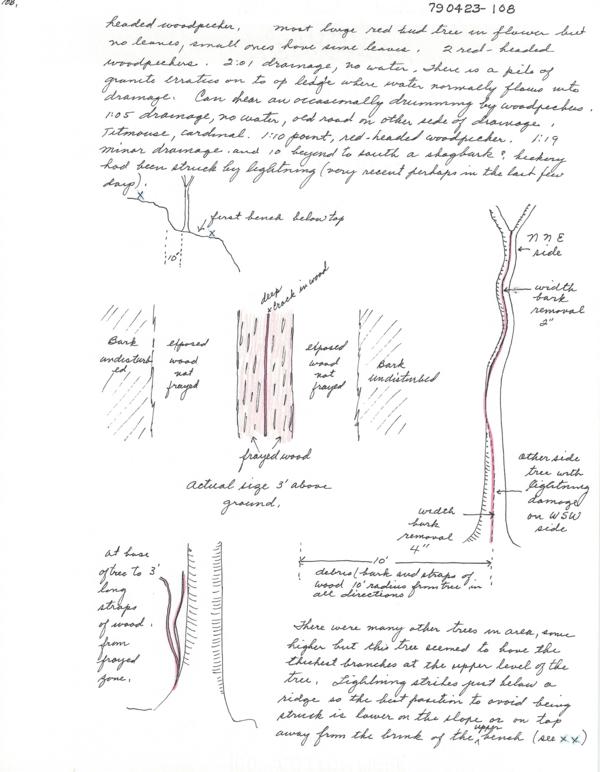 108.
790423-108
headed woodpecker. most large red bud tree in flower but
no leaves, small ones have some leaves. 2 red-headed
woodpeckers. 2:01 drainage, no water. There is a pile of
granite erratics on top ledge where water normally flows into
drainage. Can hear an occasionally drumming by woodpeckers.
1:05 drainage, no water, old road on other side of drainage.
Titmouse, cardinal. 1:10 point, red-headed woodpecker. 1:19
minor drainage and 10' beyond to south a shagbark? hickory
had been struck by lightning (very recent perhaps in the last few
days).
x
first bench below top
x
10'
NNE
side
width
bark
removal
2"
deep
crack in wood
Bark
undisturb
ed
exposed
wood
not
frayed
exposed
wood
not
frayed
Bark
undisturbed
frayed wood
Actual size 3' above
ground.
other side
tree with
lightning
damage
on WSW
side
width
bark
removal
4"
10'
debris/bark and straps of
wood 10' radius from tree in
all directions
at base
of tree to 3'
long
straps
of wood
from
frayed
zone.
There were many other trees in area, some
higher but this tree seemed to have the
thickest branches at the upper level of the
tree. Lightning strikes just below a
ridge so the best position to avoid being
struck is lower on the slope or on top
away from the brink of the upper bench (see xx)